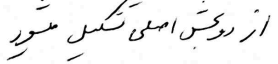 از دو بخش اصلی تشکیل میشود